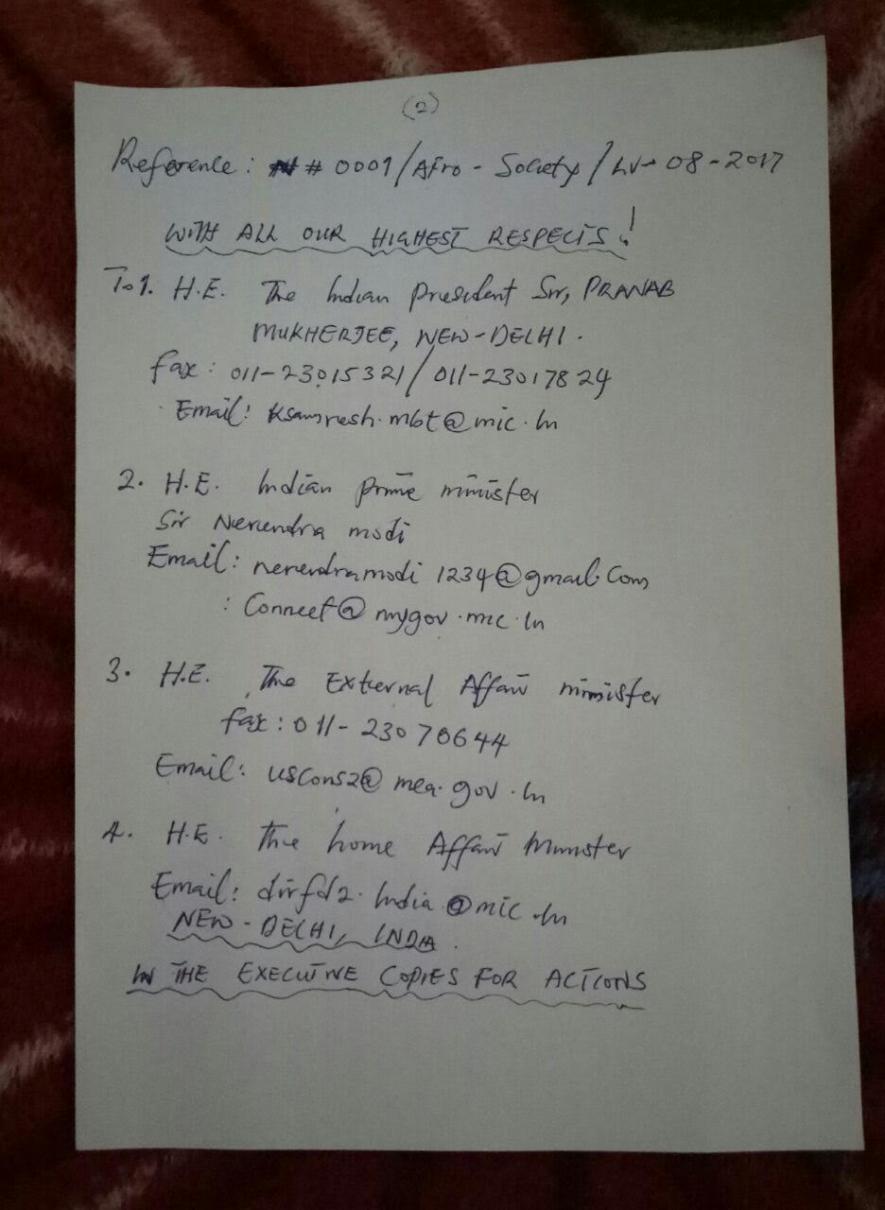 (2)
Reference: # 0001/Afro - Society / LV- 08-2017
WITH ALL OUR HIGHEST RESPECTS!
To 1. H.E. The Indian President Sir, PRANAB
MUKHERJEE, NEW-DELHI.
fax: 011-23015321/011-23017824
Email: Ksamresh.mbt@mic.In
2. H.E. Indian prime minister
Sir Nerendra modi
Email: nerendramodi 1234@gmail.com
: Connect@mygov.mic.In
3. H.E. The External Affair minister
fax: 011-23070644
Email: uscons2@mea.gov.In
4. H.E. The home Affair Minister
Email: dirfd2.India@mic.In
NEW-DELHI, INDIA.
IN THE EXECUTIVE COPIES FOR ACTIONS